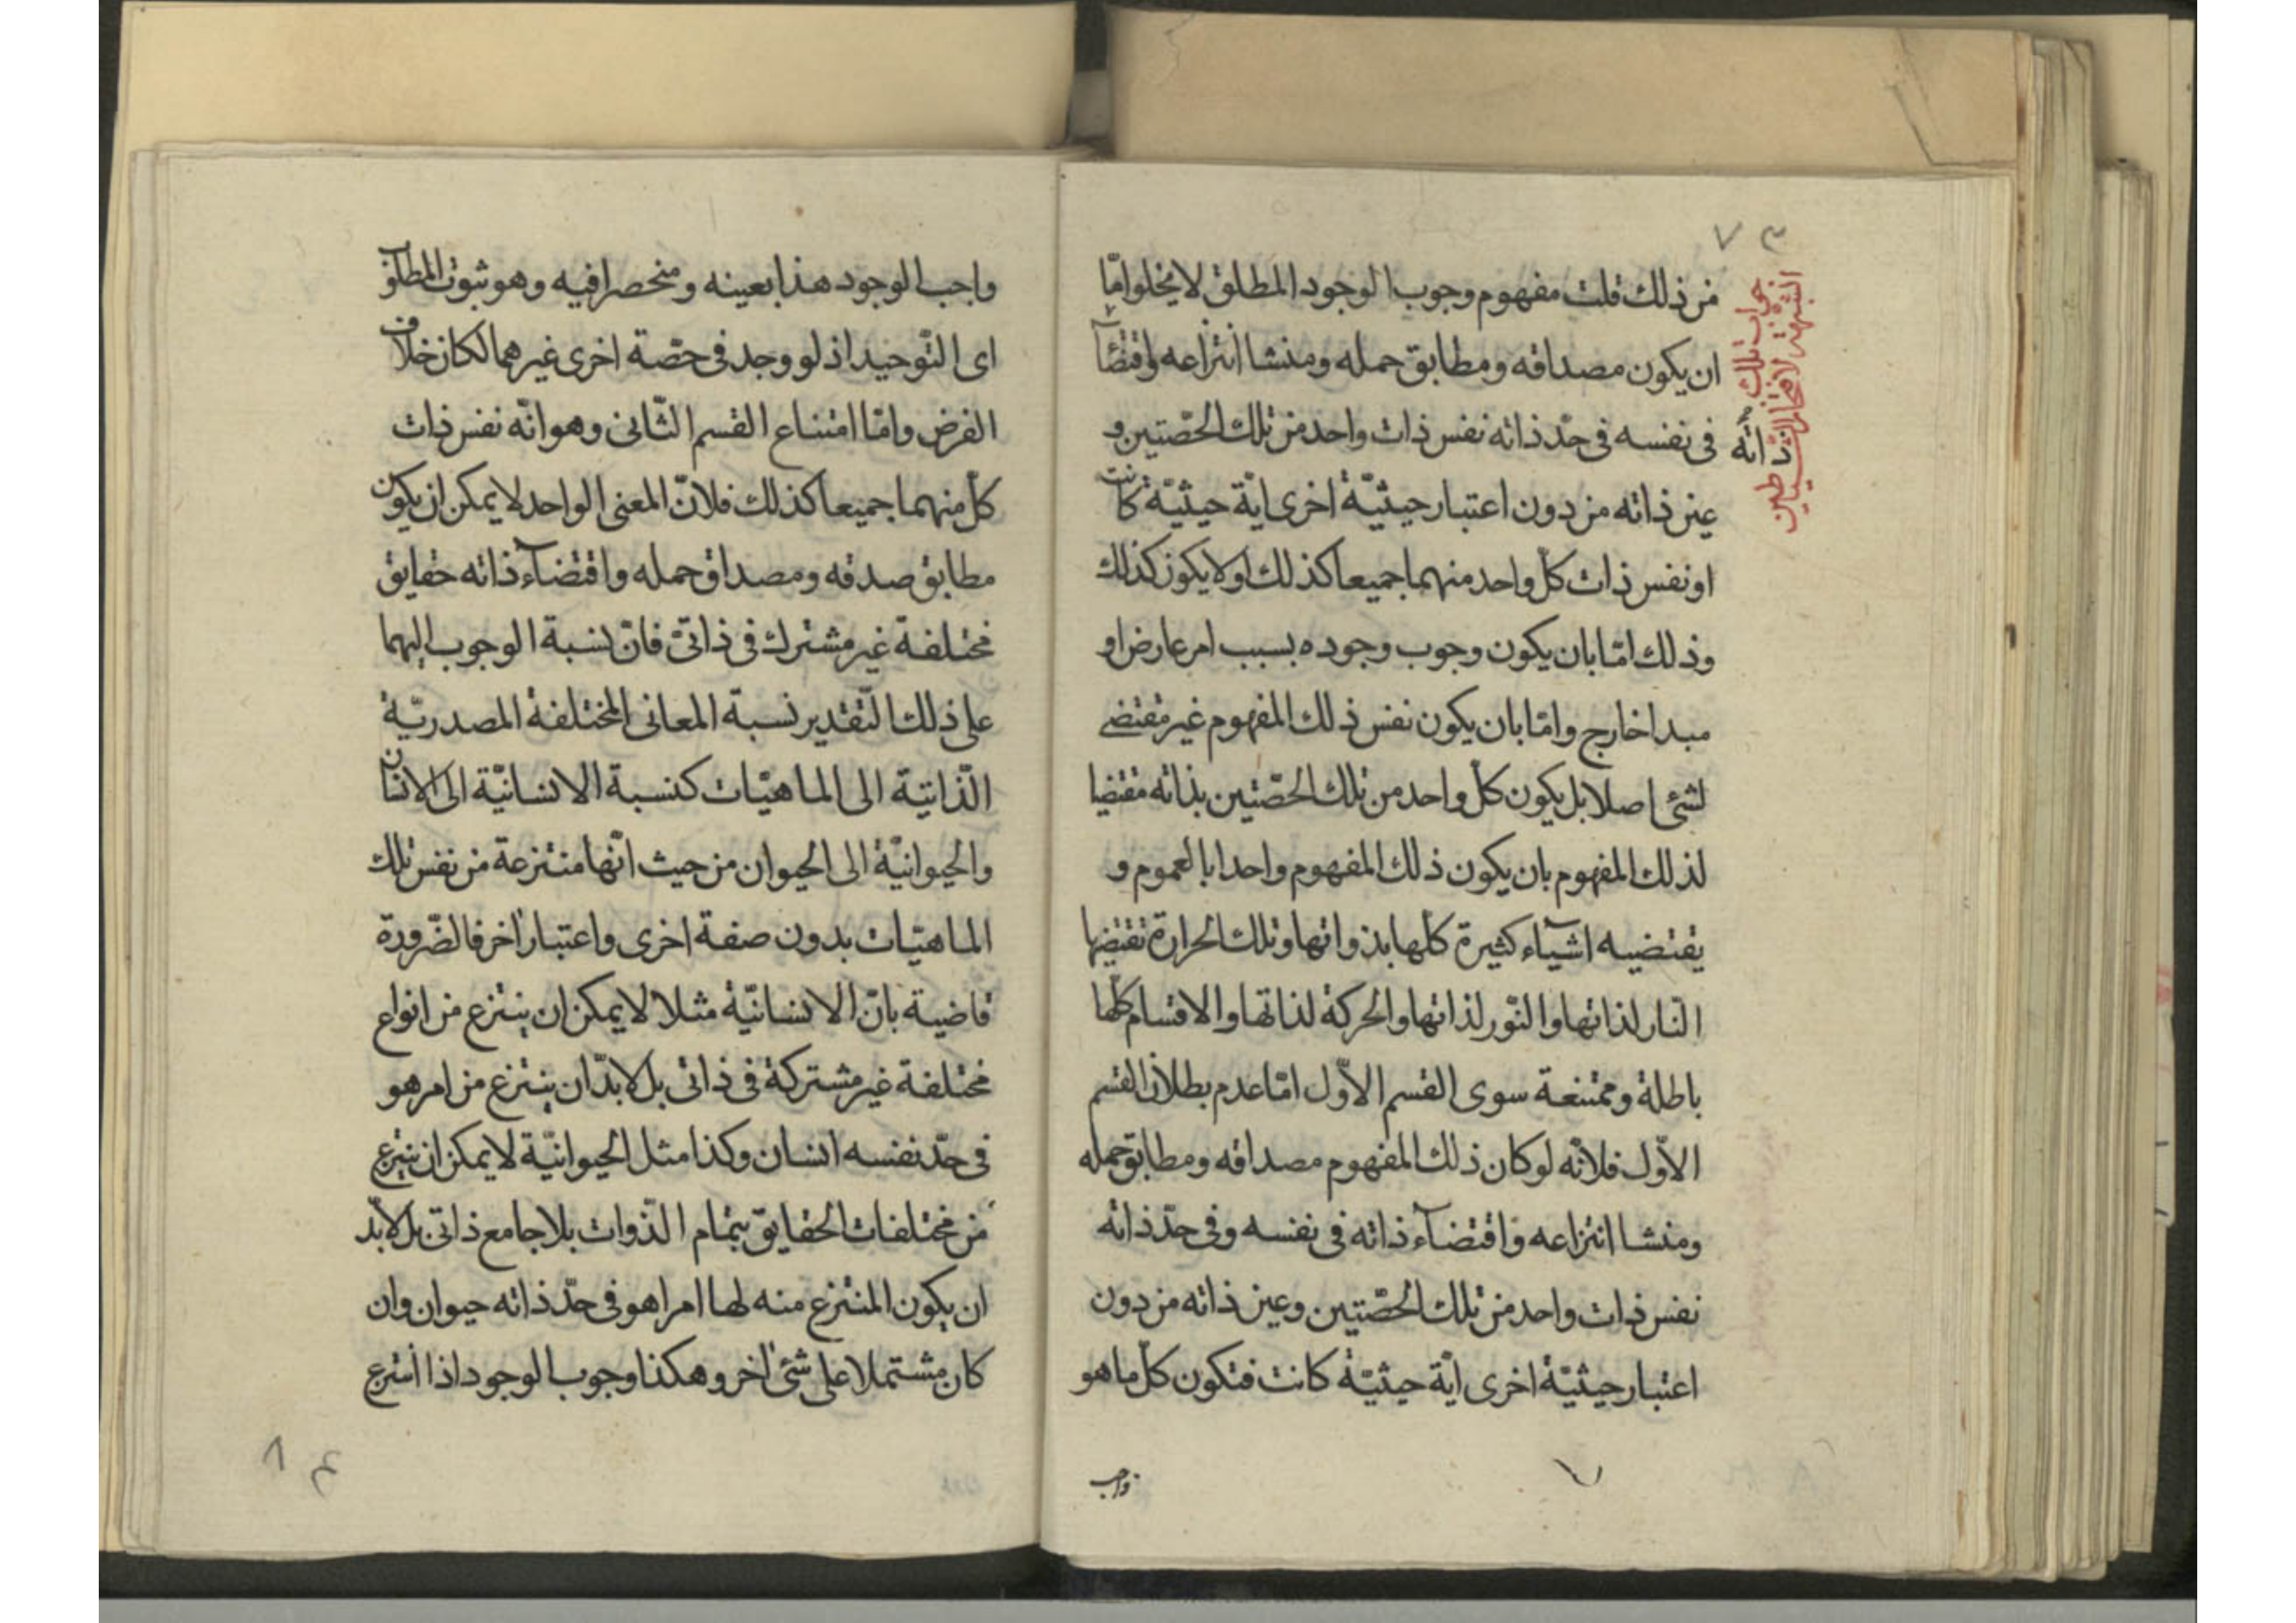 ٧ ٣
جواب تلك
الشبهة لافتخار الشياطين
من ذلك قلت مفهوم وجوب الوجود المطلق لا يخلوا امّا
ان يكون مصداقه ومطابق حمله ومنشا انتزاعه واقتضآء
ذاته
فى نفسه فى حدّ ذاته نفس ذات واحد من تلك الحصّتين و
عين ذاته من دون اعتبار حيثيّة اخرى ايّة حيثيّة كانت
او نفس ذات كلّ واحد منهما جميعا كذلك او لا يكون كذلك
وذلك امّا بان يكون وجوب وجوده بسبب امر عارض او
مبدا خارج وامّا بان يكون نفس ذلك المفهوم غير مقتضى
لشئ اصلا بل يكون كلّ واحد من تلك الحصّتين بذاته مقتضيا
لذلك المفهوم بان يكون ذلك المفهوم واحدا بالعموم و
يقتضيه اشيآء كثيرة كلّها بذواتها وتلك الحرارة تقتضيها
النّار لذاتها والنّور لذاتها والحركة لذاتها والاقسام كلّها
باطلة وممتنعة سوى القسم الاوّل امّا عدم بطلان القسم
الاوّل فلانّه لو كان ذلك المفهوم مصداقه ومطابق حمله
ومنشا انتزاعه واقتضآء ذاته فى نفسه وفى حدّ ذاته
نفس ذات واحد من تلك الحصّتين وعين ذاته من دون
اعتبار حيثيّة اخرى ايّة حيثيّة كانت فتكون كلّ ما هو
واجب
٧
واجب الوجود هذا بعينه ومنحصرا فيه وهو ثبوت المطلوب
اى التّوحيد اذ لو وجد فى حصّة اخرى غيرهما لكان خلاف
الفرض وامّا امتناع القسم الثّانى وهو انّه نفس ذات
كلّ منهما جميعا كذلك فلانّ المعنى الواحد لا يمكن ان يكون
مطابق صدقه ومصداق حمله واقتضآء ذاته حقايق
مختلفة غير مشترك فى ذاتىّ فانّ نسبة الوجوب اليهما
على ذلك التّقدير نسبة المعانى المختلفة المصدريّة
الذّاتيّة الى الماهيّات كنسبة الانسانيّة الى الانسان
والحيوانيّة الى الحيوان من حيث انّها منتزعة من نفس تلك
الماهيّات بدون صفة اخرى واعتبار اخر فالضّرورة
قاضية بانّ الانسانيّة مثلا لا يمكن ان ينتزع من انواع
مختلفة غير مشتركة فى ذاتى بل لابدّ ان ينتزع من امر هو
فى حدّ نفسه انسان وكذا مثل الحيوانيّة لا يمكن ان ينتزع
من مختلفات الحقايق بتمام الذّوات بلا جامع ذاتى بل لابدّ
ان يكون المنتزع منه لها امرا هو فى حدّ ذاته حيوان وان
كان مشتملا على شئ اخر وهكذا وجوب الوجود اذا انتزع
٨ ٤